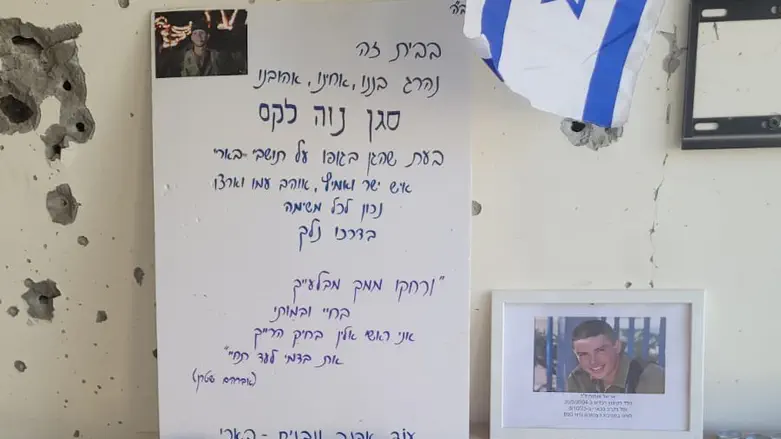 ב"ה
בבית זה
נהרג בננו, אחינו, אהובנו
סגן נוה לקס
בעת שהגן בגופו על תושבי בארי
איש ישר ואמיץ, אוהב עמו וארצו
נכון לכל משימה
בדרכו נלך
"ורחקו ממך מבלעייך
בחיי ובמותי
אני ראשי אלין בחיק הרייך
את בדמי לעד תחיי"
(אברהם שטרן)